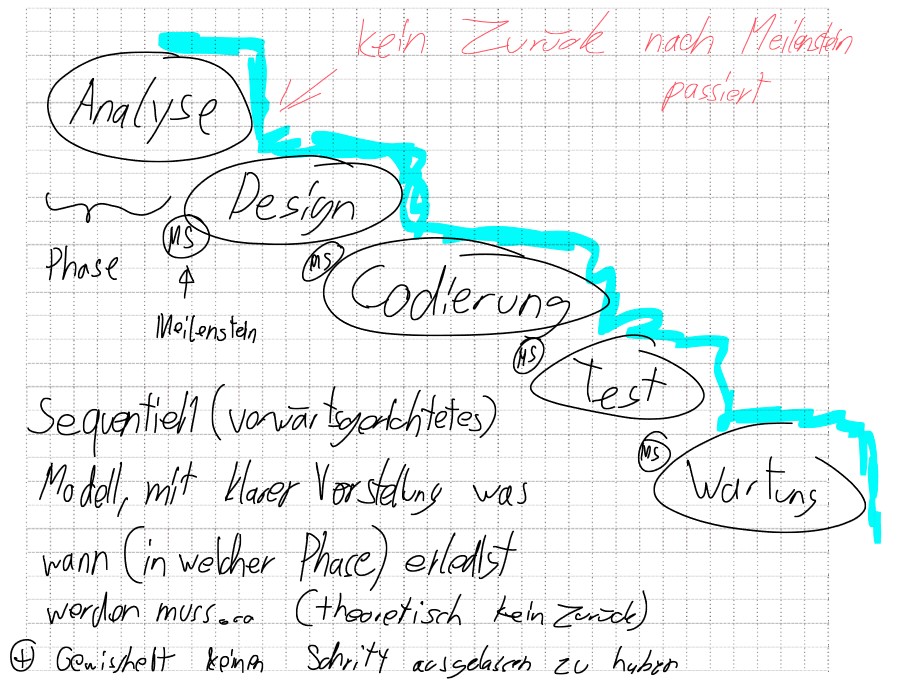 kein Zurück nach Meilenstein
passiert
Analyse
Design
Phase
MS
Meilenstein
MS
Codierung
MS
Test
MS
Wartung
Sequentiell (vorwärtsgerichtetes)
Modell, mit klarer Vorstellung was
wann (in welcher Phase) erledigt
werden muss... (theoretisch kein Zurück)
⊕ Gewissheit keinen Schritt ausgelassen zu haben